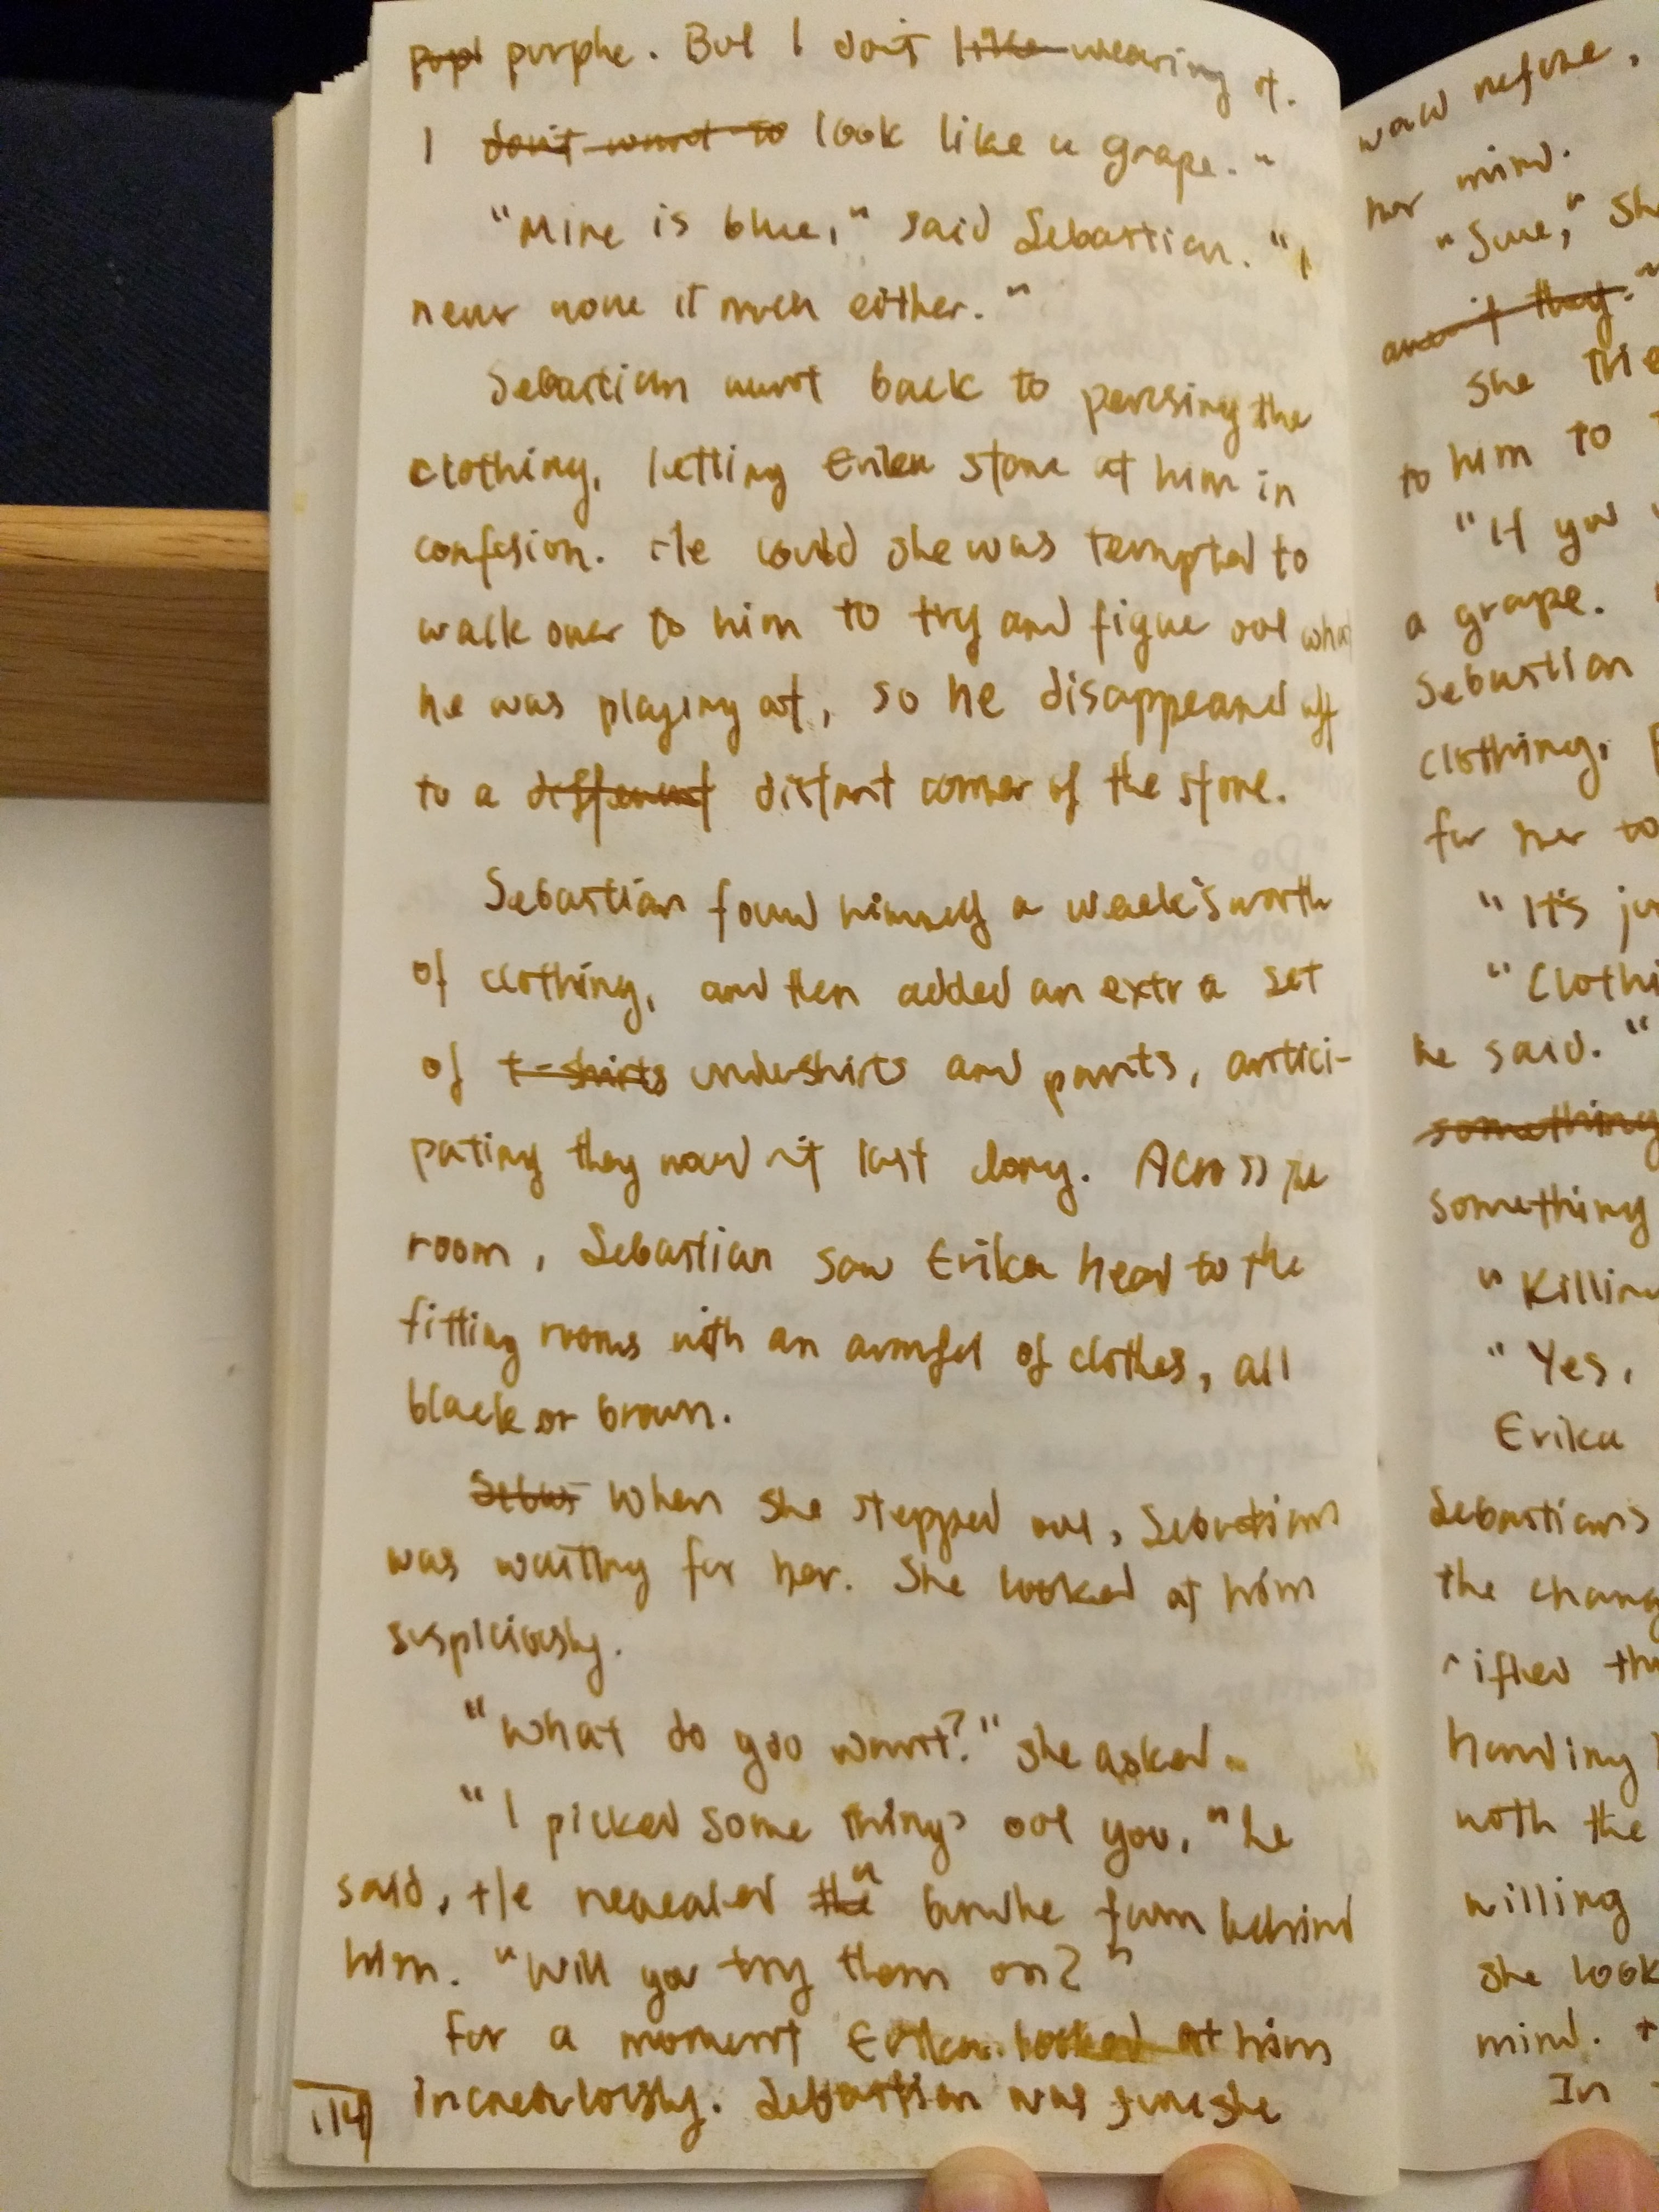 purple. But I don't like wearing it.
I don't want to look like a grape."
"Mine is blue," said Sebastian. "I
never wore it much either."
Sebastian went back to perusing the
clothing, letting Erika stare at him in
confusion. He could she was tempted to
walk over to him to try and figure out what
he was playing at, so he disappeared off
to a different distant corner of the store.
Sebastian found himself a week's worth
of clothing, and then added an extra set
of t-shirts undershirts and pants, antici-
pating they wouldn't last long. Across the
room, Sebastian saw Erika head to the
fitting rooms with an armful of clothes, all
black or brown.
Sebas When she stepped out, Sebastian
was waiting for her. She looked at him
suspiciously.
"What do you want?" she asked.
"I picked some things out you," he
said, He revealed the a bundle from behind
him. "Will you try them on?"
For a moment Erika looked at him
incredulously. Sebastian was sure she
114
her mind.
"Sure," she
and if they."
She
to him to
"If you
a grape.
Sebastian
clothing,
for her to
"It's
"Clothi
he said. "
something
something
"Killing
"Yes,
Erika
Sebastian's
the
handing
with the
willing
she look
mind.
In